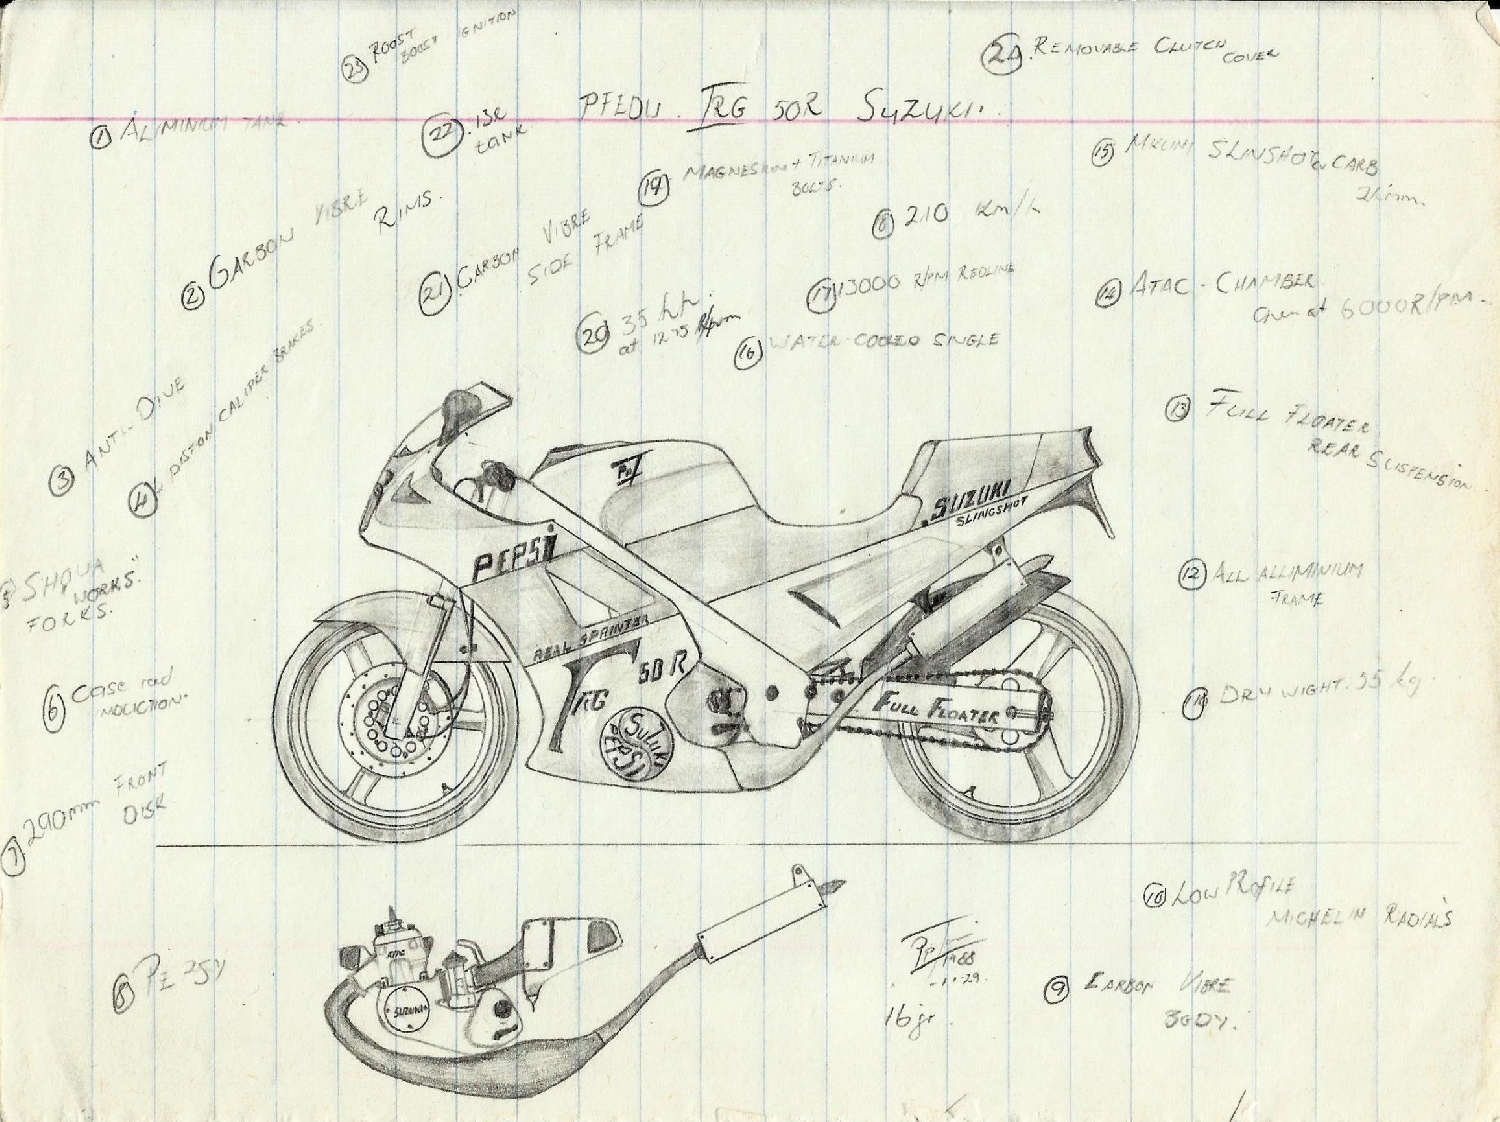 23 ROOST
BOOST IGNITION
24. REMOVABLE CLUTCH
COVER
1 ALIMINIUM TANK.
22. 13L
TANK
TRG 50R SUZUKI.
15 MIKUNI SLINSHOT CARB
19 MAGNESIUM + TITANIUM
BOLTS.
2 CARBON VIBRE
RIMS.
21 CARBON VIBRE
SIDE FRAME
8 210 Km/h
17 13000 R/PM REDLINE
14 ATAC-CHAMBER
6000R/PM
20 35 h.h.
at 1275 R/pm
16 WATER-COOLED SINGLE
3 ANTI-DIVE
4 PISTON CALIPER BRAKES.
13 FULL FLOATER
REAR SUSPENSION
SUZUKI
SLINGSHOT
PEPSI
SHOWA
"WORKS"
FORKS.
12 ALL ALLIMINIUM
FRAME
REAL SPRINTER
TRG 50 R
FULL FLOATER
SUZUKI
PEPSI
6 Case reed
INDUCTION.
11 DRY WIGHT. 55 kg.
7 290mm FRONT
DISK
10 LOW PROFILE
MICHELIN RADIALS
SUZUKI
1988
-1-29.
16 jr
9 CARBON VIBRE
BODY.